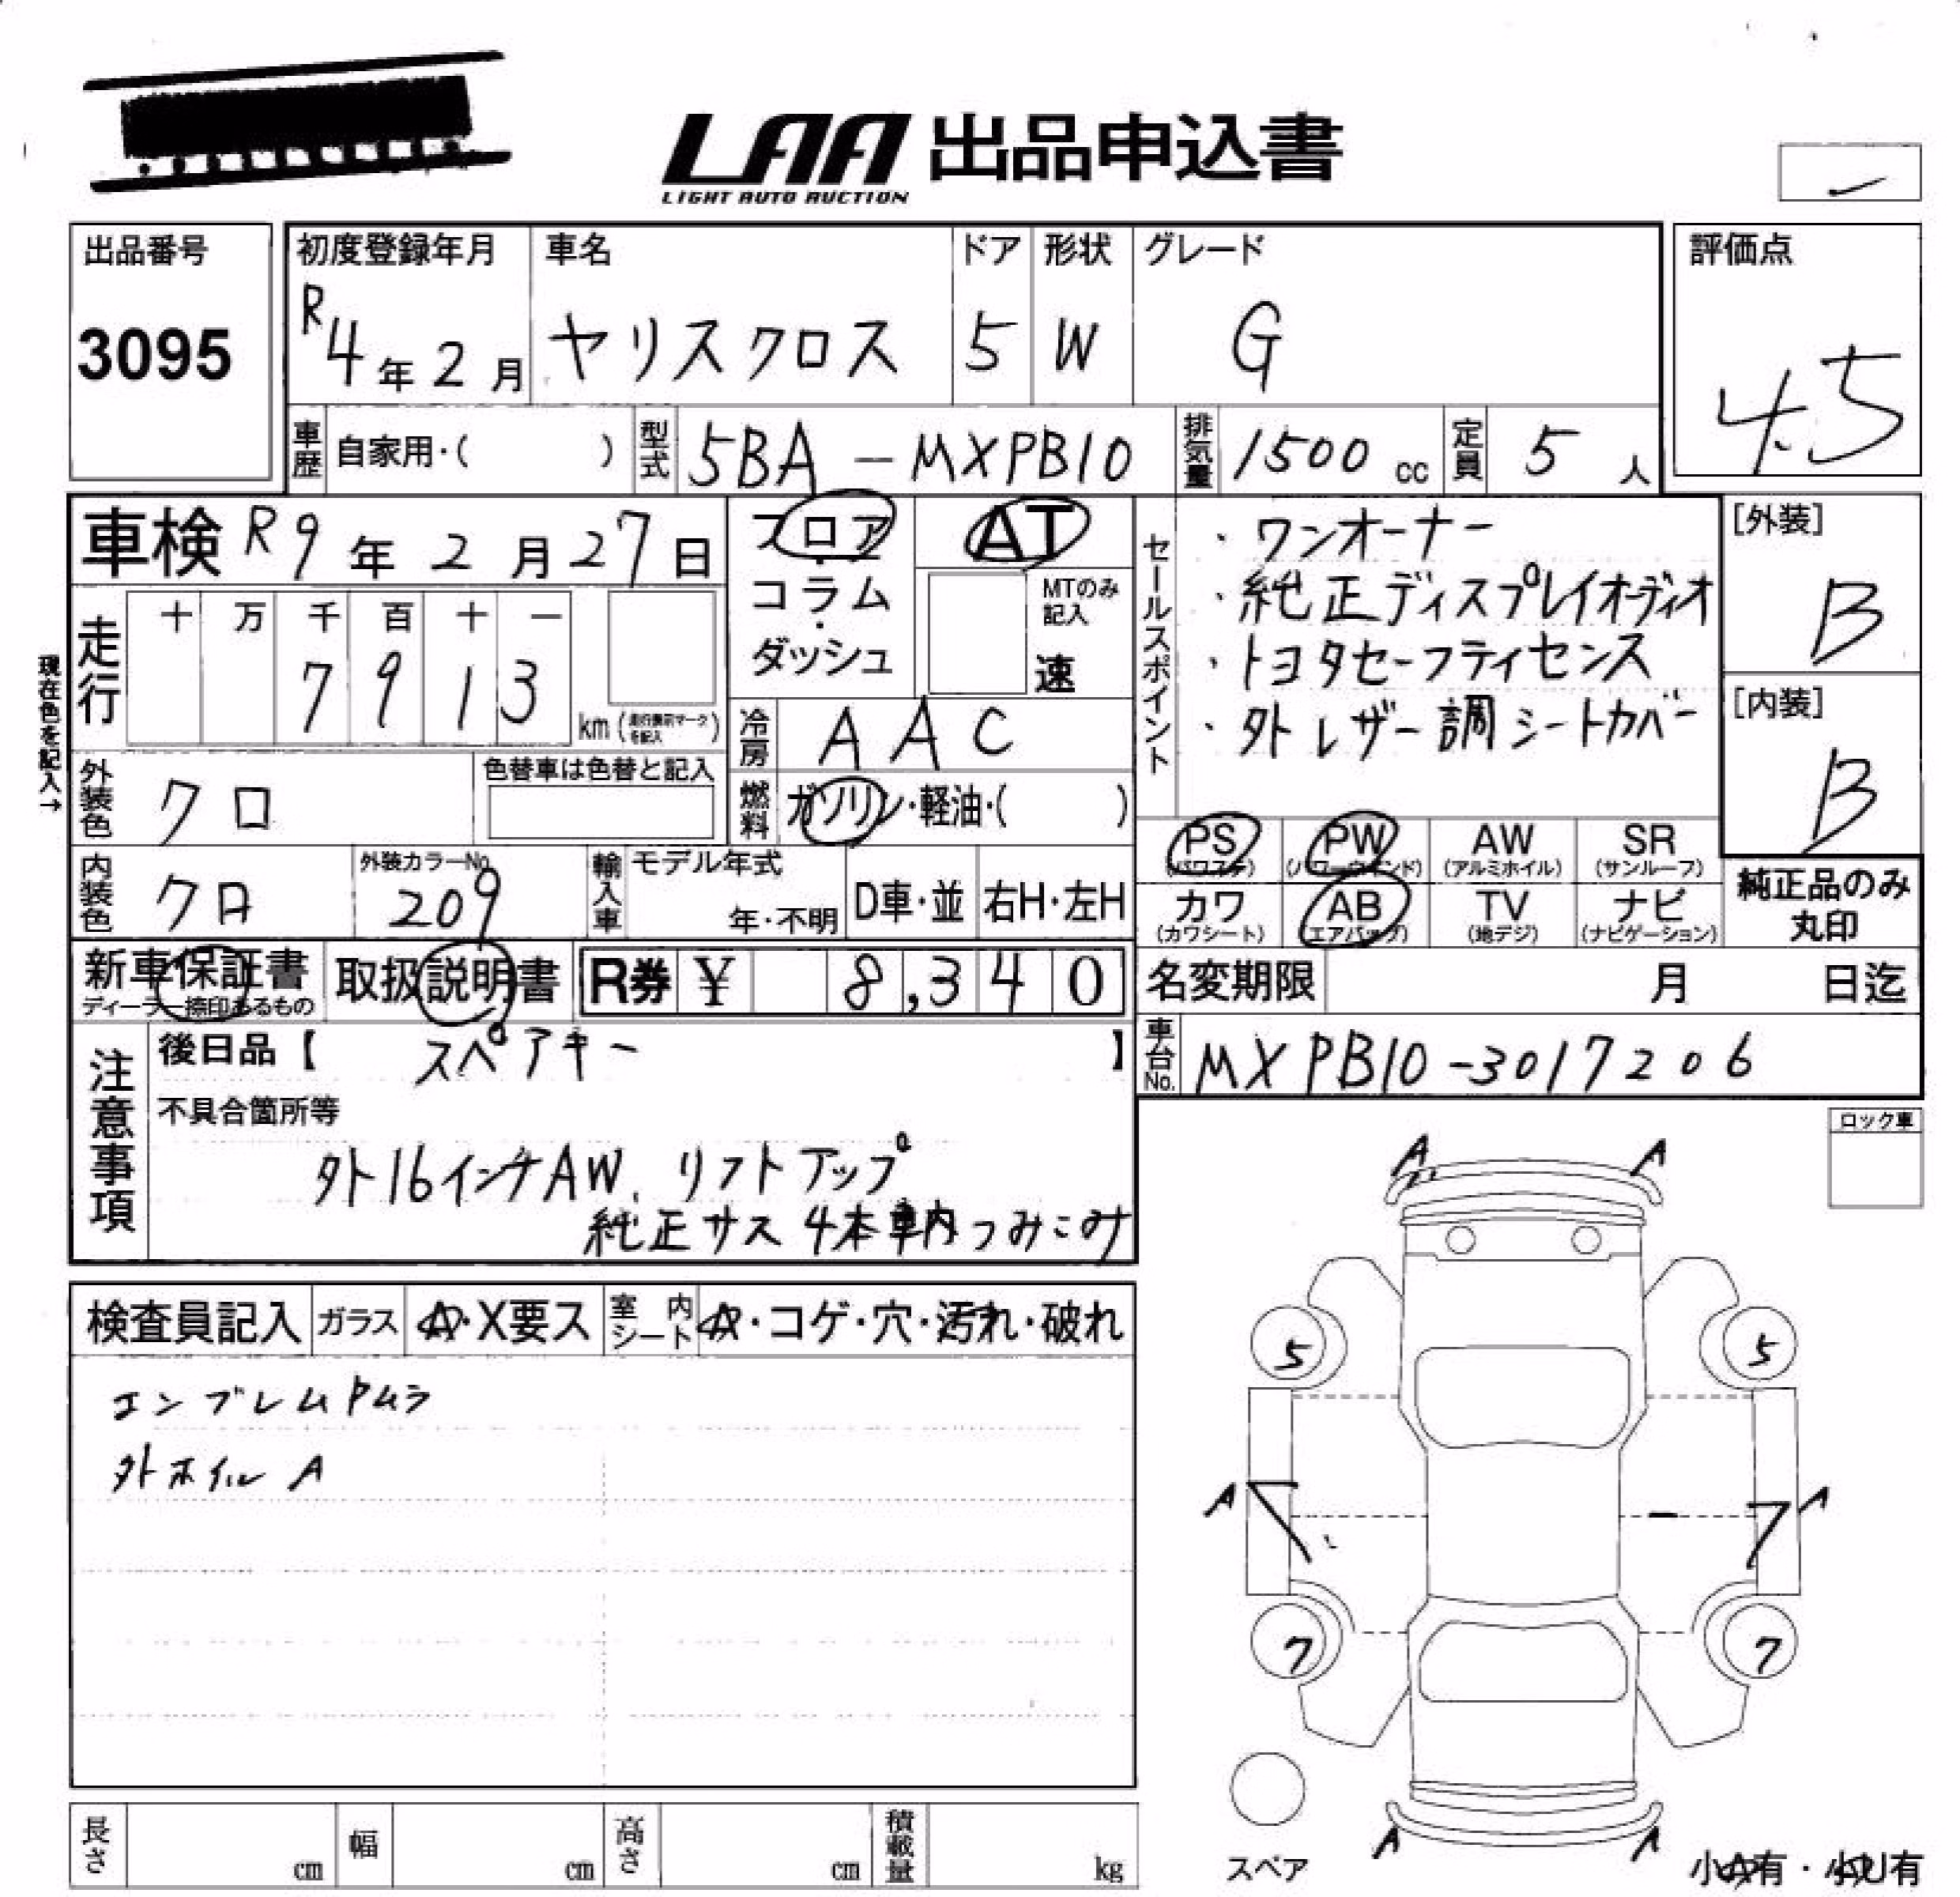 LAA 出品申込書
LIGHT AUTO AUCTION
出品番号
3095
初度登録年月
R4年2月
車名
ヤリスクロス
ドア
5
形状
W
グレード
G
評価点
4.5
車歴 自家用・( )
型式 5BA-MXPB10
排気量 1500 cc
定員 5 人
車検 R9年2月27日
フロア・コラム・ダッシュ
AT
MTのみ記入
速
現在色を記入→
走行
十 万 千 百 十 一
7 9 1 3
km(走行換算マークを記入)
冷房 AAC
燃料 ガソリン・軽油・( )
外装色 クロ
色替車は色替と記入
内装色 クロ
外装カラーNo.
209
輸入車 モデル年式
年・不明
D車・並
右H・左H
セールスポイント
・ワンオーナー
・純正ディスプレイオーディオ
・トヨタセーフティセンス
・外レザー調シートカバー
[外装]
B
[内装]
B
PS (パワステ)
PW (パワーウインド)
AW (アルミホイル)
SR (サンルーフ)
カワ (カワシート)
AB (エアバッグ)
TV (地デジ)
ナビ (ナビゲーション)
純正品のみ
丸印
新車保証書
ディーラー捺印あるもの
取扱説明書
R券 ¥ 8,340
名変期限 月 日迄
車台No. MXPB10-3017206
注意事項
後日品【 スペアキー 】
不具合箇所等
外16インチAW、リフトアップ
純正サス4本車内つみこみ
ロック車
検査員記入
ガラス A・X要ス
室内シート A・コゲ・穴・汚れ・破れ
エンブレムPムラ
外ホイルA
A A
5 5
A A
7 7
A A
スペア
小A有・小U有
長さ cm
幅 cm
高さ cm
積載量 kg